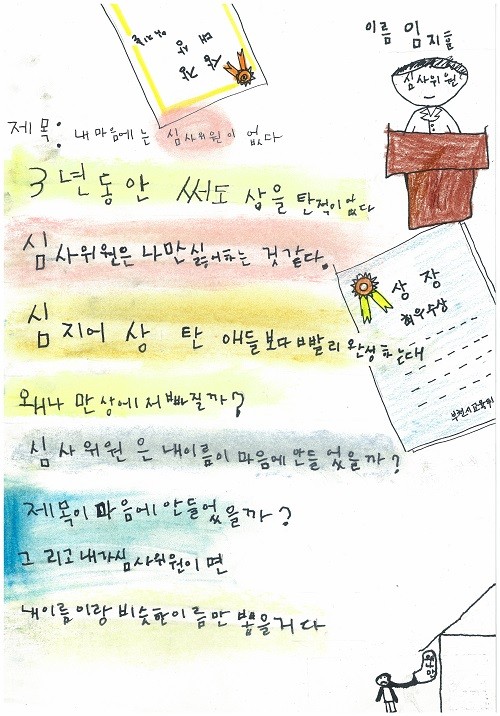 이름 임
심사위원
제목: 내 마음에는 심사위원이 없다
3년동안 써도 상을 탄적이없다
심사위원은 나만싫어하는 것같다.
심지어 상 탄 애들보다 빨리 완성하는대
상장
최우수상
왜나만상에서빠질까?
심사위원은 내이름이 마음에안들었을까?
제목이 마음에안들었을까?
그리고내가심사위원이면
내이름이랑 비슷한이름만 뽑을거다